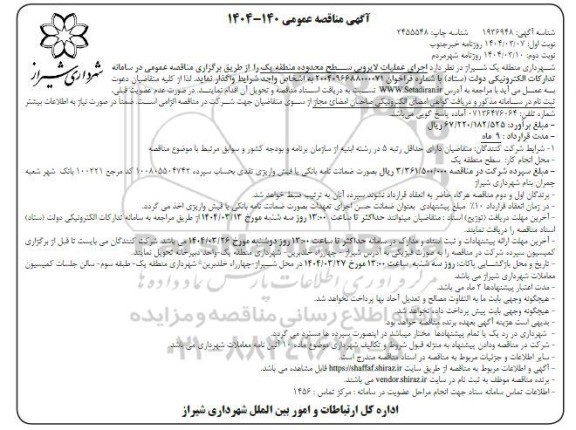 آگهی مناقصه عمومی ۱۴۰-۱۴۰۴
شناسه آگهی: ۱۹۳۶۹۴۸ شناسه چاپ: ۲۴۵۵۵۴۸
نوبت اول: ۱۴۰۴/۰۳/۰۷ روزنامه خبرجنوب
نوبت دوم: ۱۴۰۴/۰۳/۱۰ روزنامه
شهرداری شیراز
شهرداری منطقه یک شیراز در نظر دارد اجرای عملیات لایروبی سطح محدوده منطقه یک را از طریق برگزاری مناقصه عمومی در سامانه
تدارکات الکترونیکی دولت (ستاد) با شماره فراخوان ۲۰۰۴۰۹۶۶۸۸۰۰۰۰۷۱ به اشخاص واجد شرایط واگذار نماید. لذا از کلیه متقاضیان دعوت
به عمل می آید با مراجعه به آدرس www.Setadiran.ir نسبت به دریافت اسناد مناقصه و تحویل آن اقدام نمایند. در صورت عدم عضویت قبلی،
ثبت نام در سامانه مذکور و دریافت گواهی امضای الکترونیکی صاحبان امضای مجاز از سوی متقاضیان جهت شرکت در مناقصه الزامی است. ضمنا در صورت نیاز به اطلاعات بیشتر
شماره تلفن: ۰۷۱۳۶۴۷۶۰۶۴ آماده پاسخ گویی می باشد.
- مبلغ برآورد: ۶۷/۲۲۰/۱۸۲/۵۲۵ ریال
- مدت قرارداد: ۹ ماه
۱- شرایط شرکت کنندگان: متقاضیان دارای حداقل رتبه ۵ در رشته ابنیه از سازمان برنامه و بودجه کشور و سوابق مرتبط با موضوع مناقصه
- محل انجام کار: سطح منطقه یک
- مبلغ سپرده شرکت در مناقصه ۳/۳۶۱/۵۰۰/۰۰۰ ریال بصورت ضمانت نامه بانکی یا فیش واریزی نقدی بحساب سپرده ۱۰۰۸۰۵۵۰۴۷۴۲ کدمرجع ۱۰۰۲۲۱ بانک شهر شعبه
چمران بنام شهرداری شیراز
- برندگان اول و دوم مناقصه هرگاه حاضر به انعقاد قرارداد نشوند سپرده آنان به ترتیب ضبط خواهد شد.
- در زمان انعقاد قرارداد ۱۰٪ مبلغ پیشنهادی بعنوان ضمانت حسن اجرای تعهدات بصورت ضمانت نامه بانکی یا فیش واریزی اخذ می گردد.
- آخرین مهلت دریافت (توزیع) اسناد: متقاضیان میتوانند حداکثر تا ساعت ۱۳:۰۰ روز سه شنبه مورخ ۱۴۰۴/۰۳/۱۳ از طریق مراجعه به سامانه تدارکات الکترونیکی دولت (ستاد)
اسناد مناقصه را دریافت نمایند.
- آخرین مهلت ارائه پیشنهادات و ثبت اسناد و مدارک در سامانه حداکثر تا ساعت ۱۳:۰۰ روز دوشنبه مورخ ۱۴۰۴/۰۳/۲۶ می باشد. شرکت کنندگان می بایست تا قبل از برگزاری
کمیسیون سپرده شرکت در مناقصه را به صورت فیزیکی به آدرس شیراز - چهارراه خلدبرین - شهرداری منطقه یک - واحد دبیرخانه تحویل نمایند.
- تاریخ و محل بازگشایی پاکات: روز سه شنبه ساعت ۱۳:۰۰ مورخ ۱۴۰۴/۰۳/۲۷ در محل شیراز - چهارراه خلدبرین - شهرداری منطقه یک - طبقه سوم - سالن جلسات کمیسیون
معاملات شهرداری شیراز می باشد.
- مدت اعتبار پیشنهادها ۳ ماه می باشد.
- هیچگونه وجهی بابت ما به التفاوت مصالح و تعدیل آحاد بها پرداخت نخواهد شد.
- هیچگونه وجهی بابت پیش پرداخت داده نخواهد شد.
- بدیهی است هزینه آگهی بعهده برنده مناقصه خواهد بود.
- شهرداری در رد یک یا تمام پیشنهادها مختار میباشد در اینصورت سپرده ها مسترد می گردد.
- شرکت در مناقصه و دادن پیشنهاد به منزله قبول شروط و تکالیف شهرداری موضوع ماده ۱۰ آئین نامه معاملات شهرداری می باشد.
- سایر اطلاعات و جزئیات مربوط به مناقصه در اسناد مناقصه مندرج است.
- آگهی و اطلاعات مربوط به مناقصه از طریق سایت https://shaffaf.shiraz.ir قابل مشاهده می باشد.
- برنده مناقصه موظف به ثبت نام در سایت vendor.shiraz.ir می باشد.
- اطلاعات تماس سامانه ستاد جهت انجام مراحل عضویت در سامانه: مرکز تماس: ۱۴۵۶
اداره کل ارتباطات و امور بین الملل شهرداری شیراز